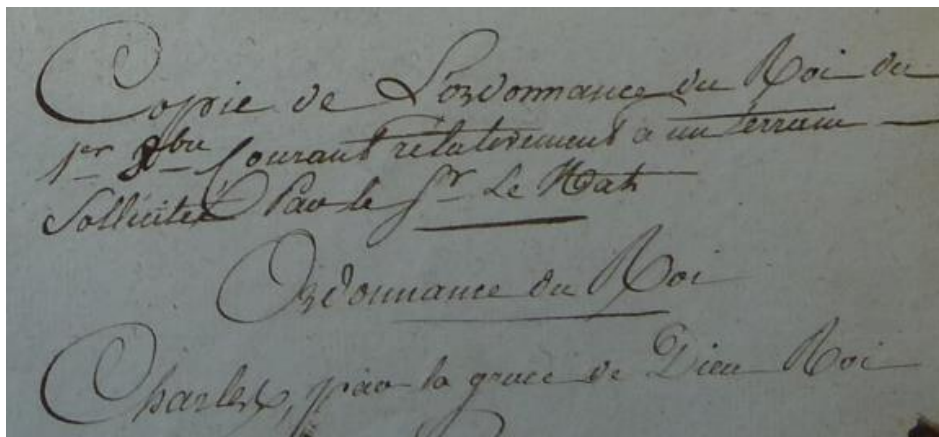 Copie de L'ordonnance du Roi du
1er 8bre Courant relativement à un terrain
Sollicité Par le Sr Le Hat
Ordonnance du Roi
Charles, par la grace de Dieu Roi